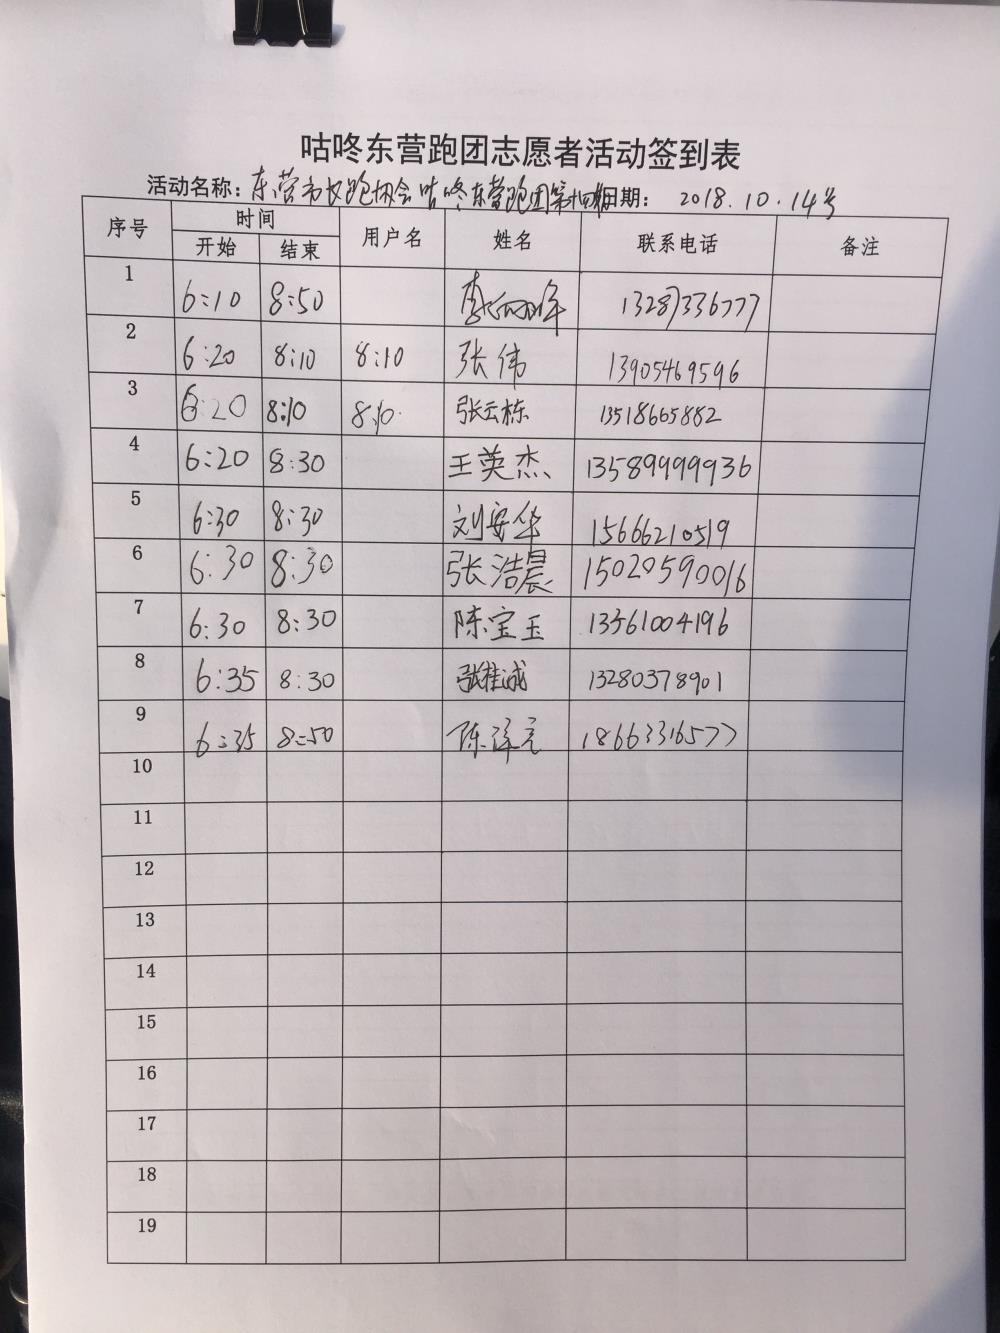 咕咚东营跑团志愿者活动签到表
活动名称：东营市长跑协会咕咚东营跑团 日期： 2018.10.14号
序号 时间 用户名 姓名 联系电话 备注
开始 结束
1 6:10 8:50 13287336777
2 6:20 8:10 8:10 张伟 13905469596
3 6:20 8:10 8:10 张云栋 13518665882
4 6:20 8:30 王英杰 13589999936
5 6:30 8:30 刘安华 15666210519
6 6:30 8:30 张浩晨 15020590016
7 6:30 8:30 陈宝玉 13561004196
8 6:35 8:30 张桂诚 13280378901
9 6:35 8:50 陈泽亮 18663316577
10
11
12
13
14
15
16
17
18
19